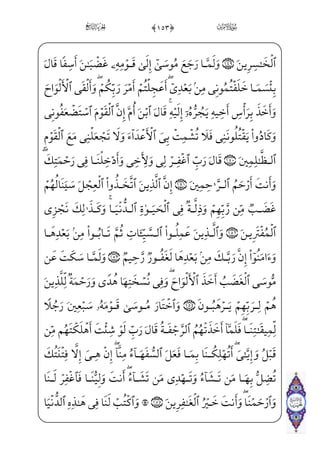 الجزء التاسع ﴿١٥٣﴾ سورة الأعراف
ٱلْخَٰسِرِينَ ۝١٤٩ وَلَمَّا رَجَعَ مُوسَىٰٓ إِلَىٰ قَوْمِهِۦ غَضْبَٰنَ أَسِفًا قَالَ
بِئْسَمَا خَلَفْتُمُونِى مِنۢ بَعْدِىٓ ۖ أَعَجِلْتُمْ أَمْرَ رَبِّكُمْ ۖ وَأَلْقَى ٱلْأَلْوَاحَ
وَأَخَذَ بِرَأْسِ أَخِيهِ يَجُرُّهُۥٓ إِلَيْهِ ۚ قَالَ ٱبْنَ أُمَّ إِنَّ ٱلْقَوْمَ ٱسْتَضْعَفُونِى
وَكَادُوا۟ يَقْتُلُونَنِى فَلَا تُشْمِتْ بِىَ ٱلْأَعْدَآءَ وَلَا تَجْعَلْنِى مَعَ ٱلْقَوْمِ
ٱلظَّٰلِمِينَ ۝١٥٠ قَالَ رَبِّ ٱغْفِرْ لِى وَلِأَخِى وَأَدْخِلْنَا فِى رَحْمَتِكَ ۖ
وَأَنتَ أَرْحَمُ ٱلرَّٰحِمِينَ ۝١٥١ إِنَّ ٱلَّذِينَ ٱتَّخَذُوا۟ ٱلْعِجْلَ سَيَنَالُهُمْ
غَضَبٌ مِّن رَّبِّهِمْ وَذِلَّةٌ فِى ٱلْحَيَوٰةِ ٱلدُّنْيَا ۚ وَكَذَٰلِكَ نَجْزِى
ٱلْمُفْتَرِينَ ۝١٥٢ وَٱلَّذِينَ عَمِلُوا۟ ٱلسَّيِّـَٔاتِ ثُمَّ تَابُوا۟ مِنۢ بَعْدِهَا
وَءَامَنُوٓا۟ إِنَّ رَبَّكَ مِنۢ بَعْدِهَا لَغَفُورٌ رَّحِيمٌ ۝١٥٣ وَلَمَّا سَكَتَ عَن
مُّوسَى ٱلْغَضَبُ أَخَذَ ٱلْأَلْوَاحَ ۖ وَفِى نُسْخَتِهَا هُدًى وَرَحْمَةٌ لِّلَّذِينَ
هُمْ لِرَبِّهِمْ يَرْهَبُونَ ۝١٥٤ وَٱخْتَارَ مُوسَىٰ قَوْمَهُۥ سَبْعِينَ رَجُلًا
لِّمِيقَٰتِنَا ۖ فَلَمَّآ أَخَذَتْهُمُ ٱلرَّجْفَةُ قَالَ رَبِّ لَوْ شِئْتَ أَهْلَكْتَهُم مِّن
قَبْلُ وَإِيَّٰىَ ۖ أَتُهْلِكُنَا بِمَا فَعَلَ ٱلسُّفَهَآءُ مِنَّآ ۖ إِنْ هِىَ إِلَّا فِتْنَتُكَ
تُضِلُّ بِهَا مَن تَشَآءُ وَتَهْدِى مَن تَشَآءُ ۖ أَنتَ وَلِيُّنَا فَٱغْفِرْ لَنَا
وَٱرْحَمْنَا ۖ وَأَنتَ خَيْرُ ٱلْغَٰفِرِينَ ۝١٥٥ ۞ وَٱكْتُبْ لَنَا فِى هَٰذِهِ ٱلدُّنْيَا